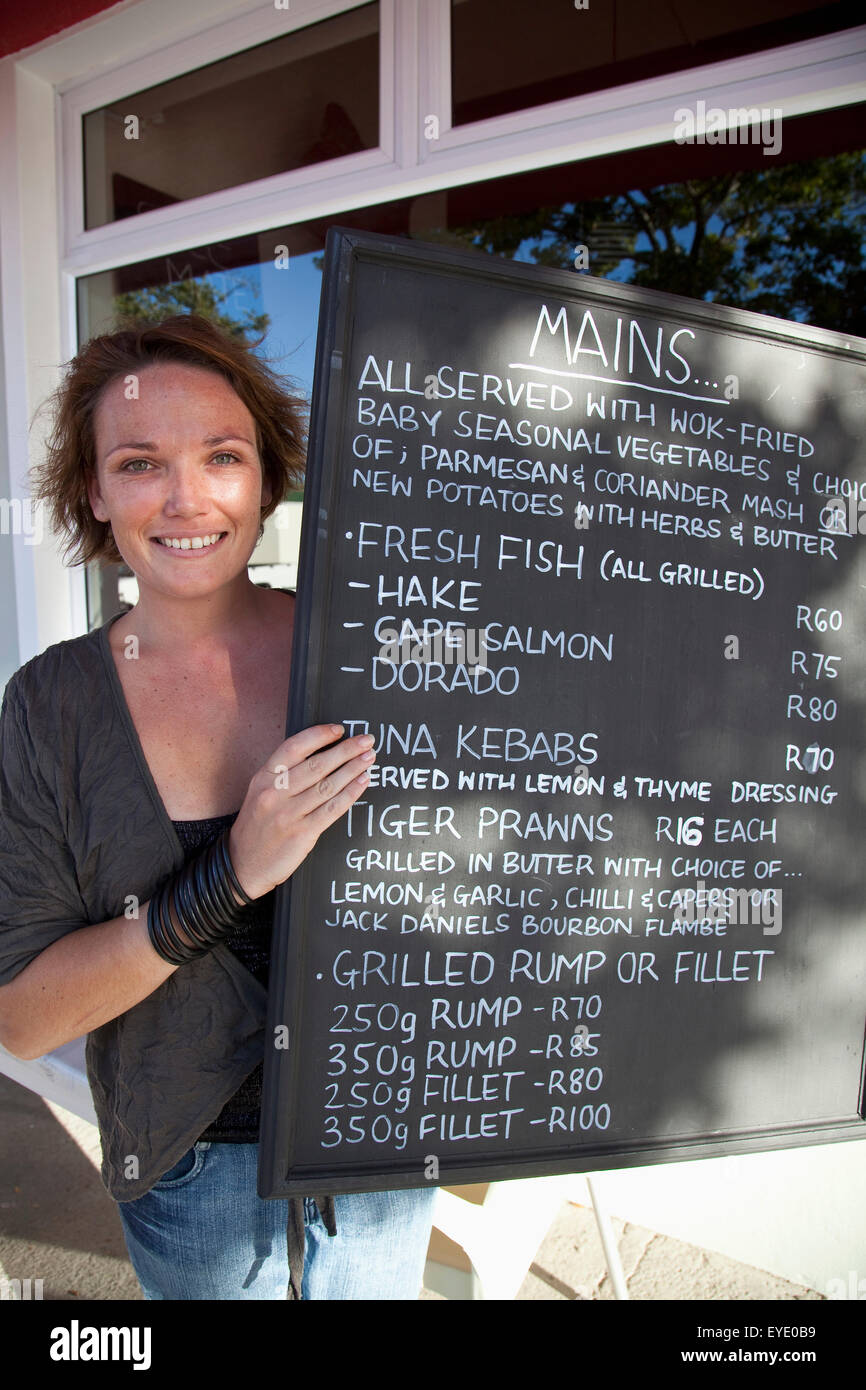 MAINS...
ALL SERVED WITH WOK-FRIED
BABY SEASONAL VEGETABLES & CHOIC
OF; PARMESAN & CORIANDER MASH OR
NEW POTATOES WITH HERBS & BUTTER
• FRESH FISH (ALL GRILLED)
- HAKE R60
- CAPE SALMON R75
- DORADO R80
TUNA KEBABS R70
SERVED WITH LEMON & THYME DRESSING
TIGER PRAWNS R16 EACH
GRILLED IN BUTTER WITH CHOICE OF...
LEMON & GARLIC, CHILLI & CAPERS OR
JACK DANIELS BOURBON FLAMBÉ
• GRILLED RUMP OR FILLET
250g RUMP - R70
350g RUMP - R85
250g FILLET - R80
350g FILLET - R100
a alamy stock photo
EYE0B9
www.alamy.com